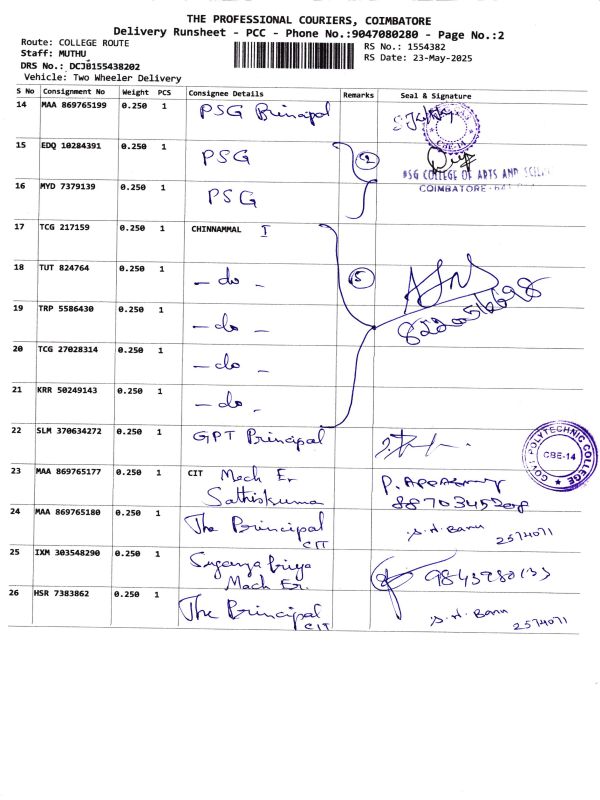 THE PROFESSIONAL COURIERS, COIMBATORE
Delivery Runsheet - PCC - Phone No.:9047080280 - Page No.:2
Route: COLLEGE ROUTE
Staff: MUTHU
DRS No.: DCJB155438202
Vehicle: Two Wheeler Delivery
RS No.: 1554382
RS Date: 23-May-2025
S No Consignment No Weight PCS Consignee Details Remarks Seal & Signature
14 MAA 869765199 0.250 1 PSG Principal
CBE-14
15 EDQ 10284391 0.250 1 PSG 2
PSG COLLEGE OF ARTS AND
COIMBATORE
16 MYD 7379139 0.250 1 PSG
17 TCG 217159 0.250 1 CHINNAMMAL I
18 TUT 824764 0.250 1 - do - 5
19 TRP 5586430 0.250 1 - do -
20 TCG 27028314 0.250 1 - do -
21 KRR 50249143 0.250 1 - do -
22 SLM 370634272 0.250 1 GPT Principal
GOVT POLYTECHNIC COLLEGE CBE-14
23 MAA 869765177 0.250 1 CIT Mech Er
Sathiskumar
8870345208
24 MAA 869765180 0.250 1 The Principal CIT S. H. Banu 2574071
25 IXM 303548290 0.250 1 Suganya Priya
Mech Er.
26 HSR 7383862 0.250 1 The Principal CIT S. H. Banu 2574071